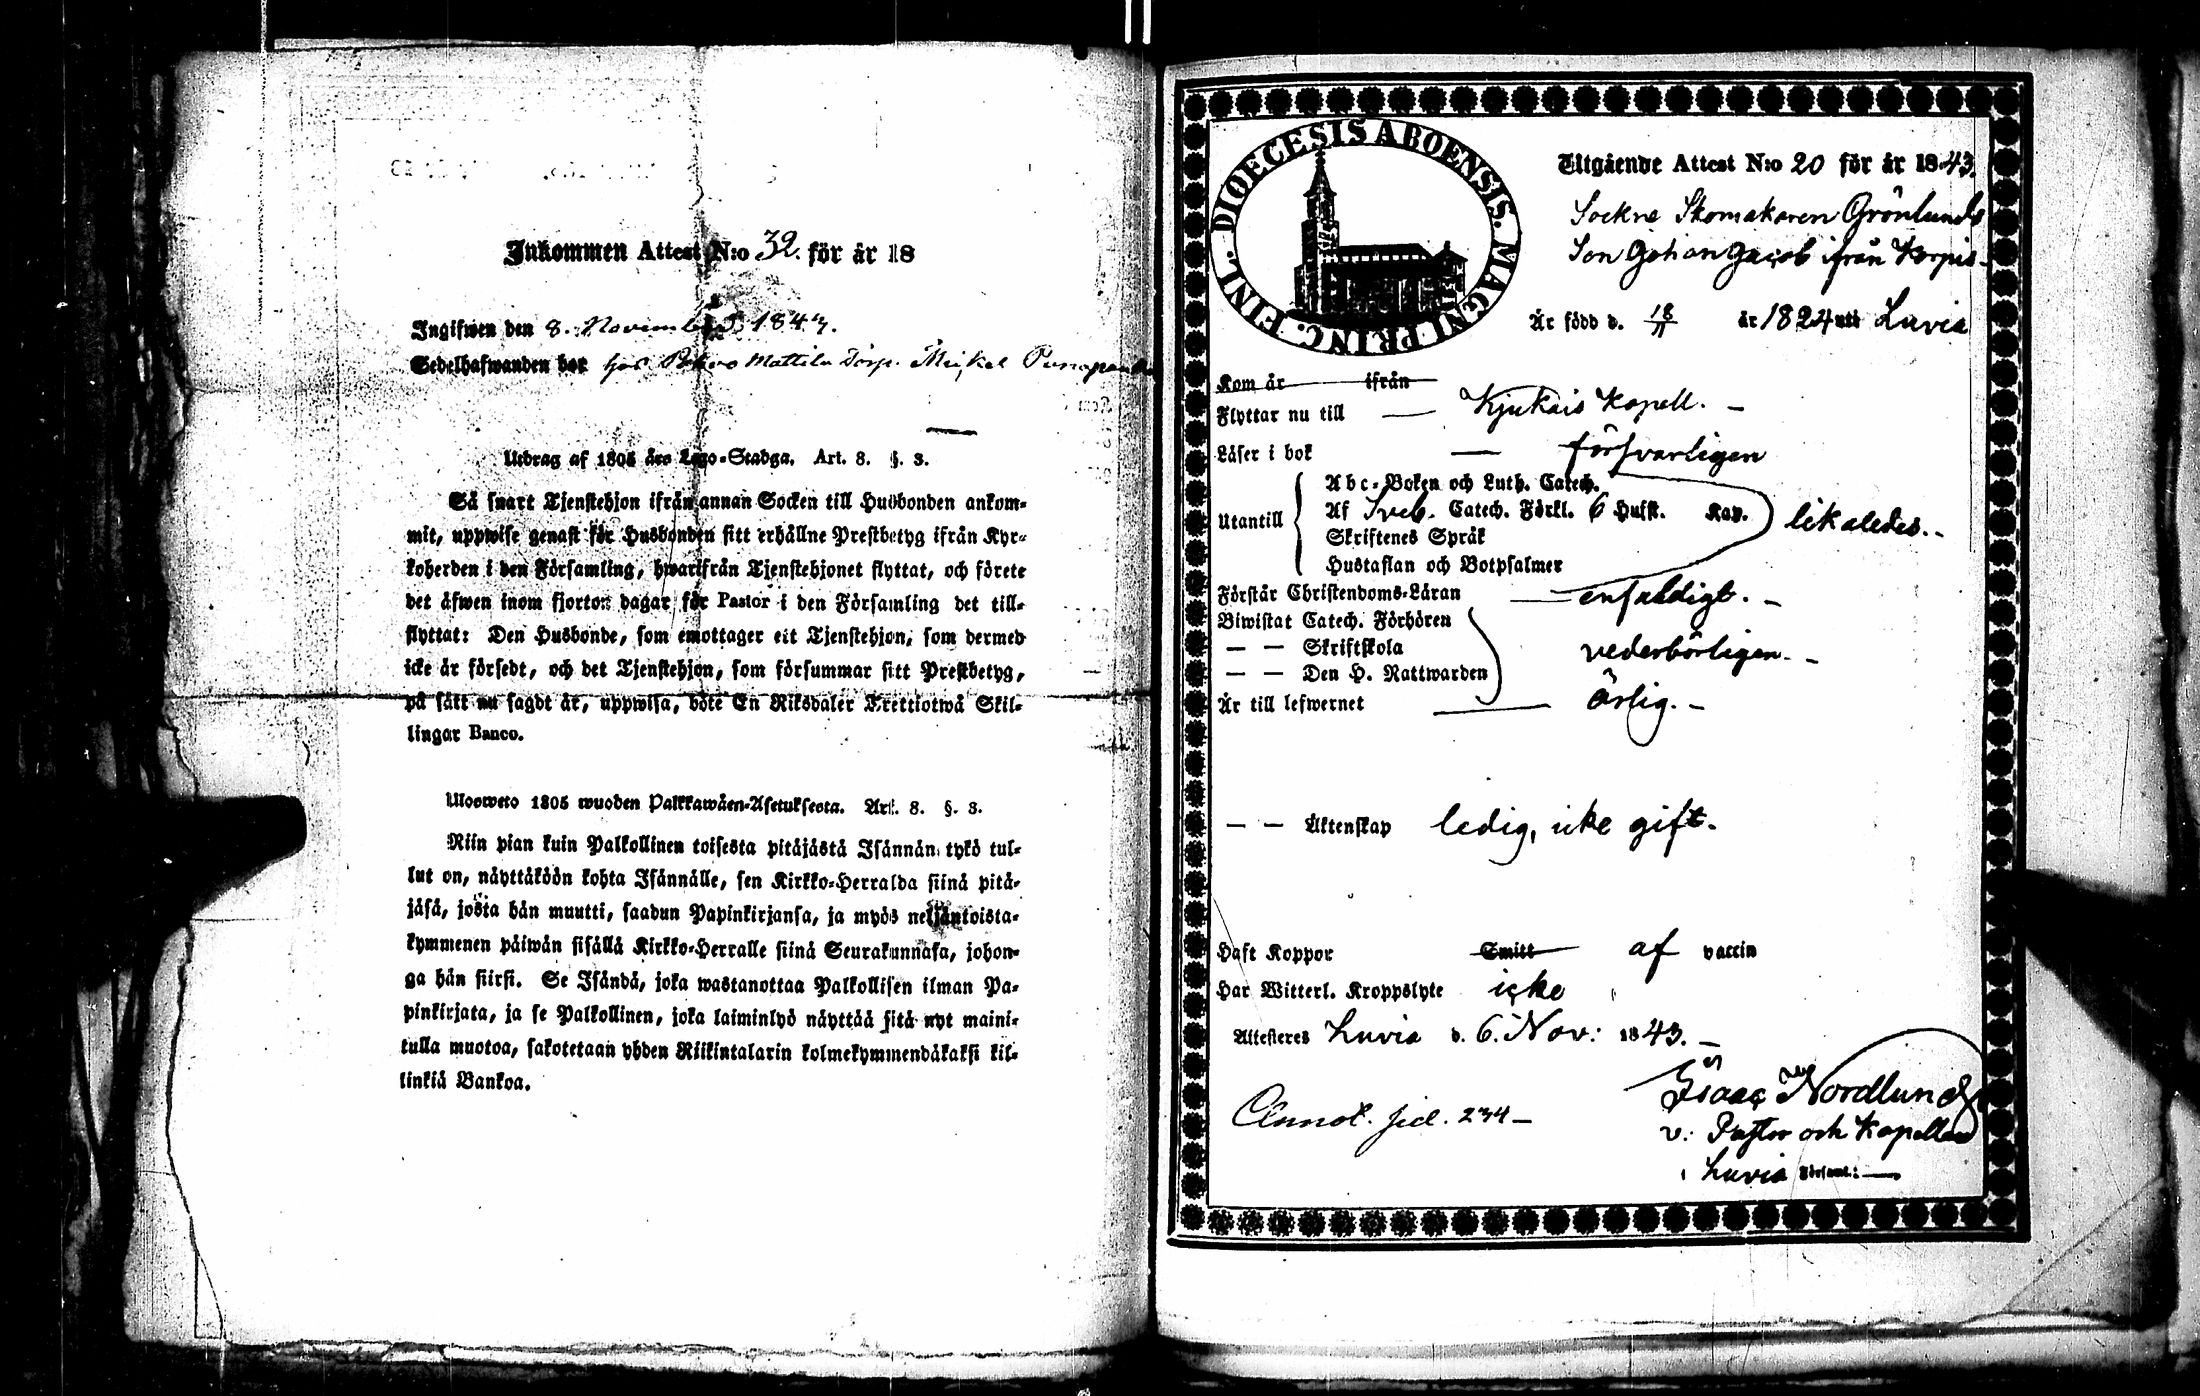 Inkommen Attest N:o 32. för år 18
Ingifwen den 8. November 1843.
Sedelhafwanden bor hos Mattila Torp. Mickel
Utdrag af 1805 års Lego-Stadga. Art. 8. §. 3.
Så snart Tjenstehjon ifrån annan Socken till Husbonden ankom-
mit, uppwise genast för Husbonden sitt erhållne Prestbetyg ifrån Kyr-
koherden i den Församling, hwarifrån Tjenstehjonet flyttat, och förete
det äfwen inom fjorton dagar för Pastor i den Församling det till-
flyttat: Den Husbonde, som emottager ett Tjenstehjon, som dermed
icke är försedt, och det Tjenstehjon, som försummar sitt Prestbetyg,
på sätt nu sagdt är, uppwisa, böte En Riksdaler Trettiotwå Skil-
lingar Banco.
Ulosweto 1805 wuoden Palkkawäen-Asetuksesta. Art. 8. §. 3.
Niin pian kuin Palkollinen toisesta pitäjästä Isännän tykö tul-
lut on, näyttäköön kohta Isännälle, sen Kirkko-Herralda siinä pitä-
jäsä, josta hän muutti, saadun Papinkirjansa, ja myös neljäntoista-
kymmenen päiwän sisällä Kirkko-Herralle siinä Seurakunnasa, johon-
ga hän siirsi. Se Isändä, joka wastanottaa Palkollisen ilman Pa-
pinkirjata, ja se Palkollinen, joka laiminlyö näyttää sitä nyt maini-
tulla muotoa, sakotetaan yhden Riikintalarin kolmekymmendäkaksi kil-
linkiä Bankoa.
DIOECESIS ABOENSIS. MAGNI PRINC. FINL.
Utgående Attest N:o 20 för år 1843.
Sockne Skomakaren Grönlunds
Son Johan Jacob ifrån Korpis-
Är född d. 18/11 år 1824 uti Luvia
Kom år ifrån
Flyttar nu till — Kjukais Kapell. —
Läser i bok — försvarligen
Abc-Boken och Luth. Catech.
Utantill Af Sveb. Catech. Förkl. 6 Hufst. Kap. likaledes. -
Skriftenes Språk
Hustaflan och Botpsalmer
Förstår Christendoms-Läran — enfaldigt. —
Biwistat Catech. Förhören
— — Skriftskola vederbörligen. —
— — Den H. Nattwarden
Är till lefwernet — ärlig. —
— — Äktenskap ledig, icke gift.
Haft Koppor Smitt af vaccin
Har Witterl. Kroppslyte icke
Attesteres Luvia d. 6. Nov: 1843. —
Isaac Nordlund
Annot. sid. 234 —
v. Pastor och Kapellan
i Luvia Församl.: —